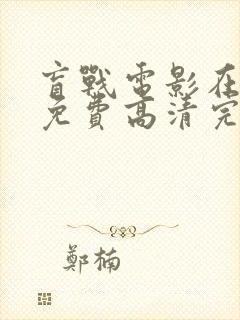 盲戰電影在
免費高清完
鄭楠